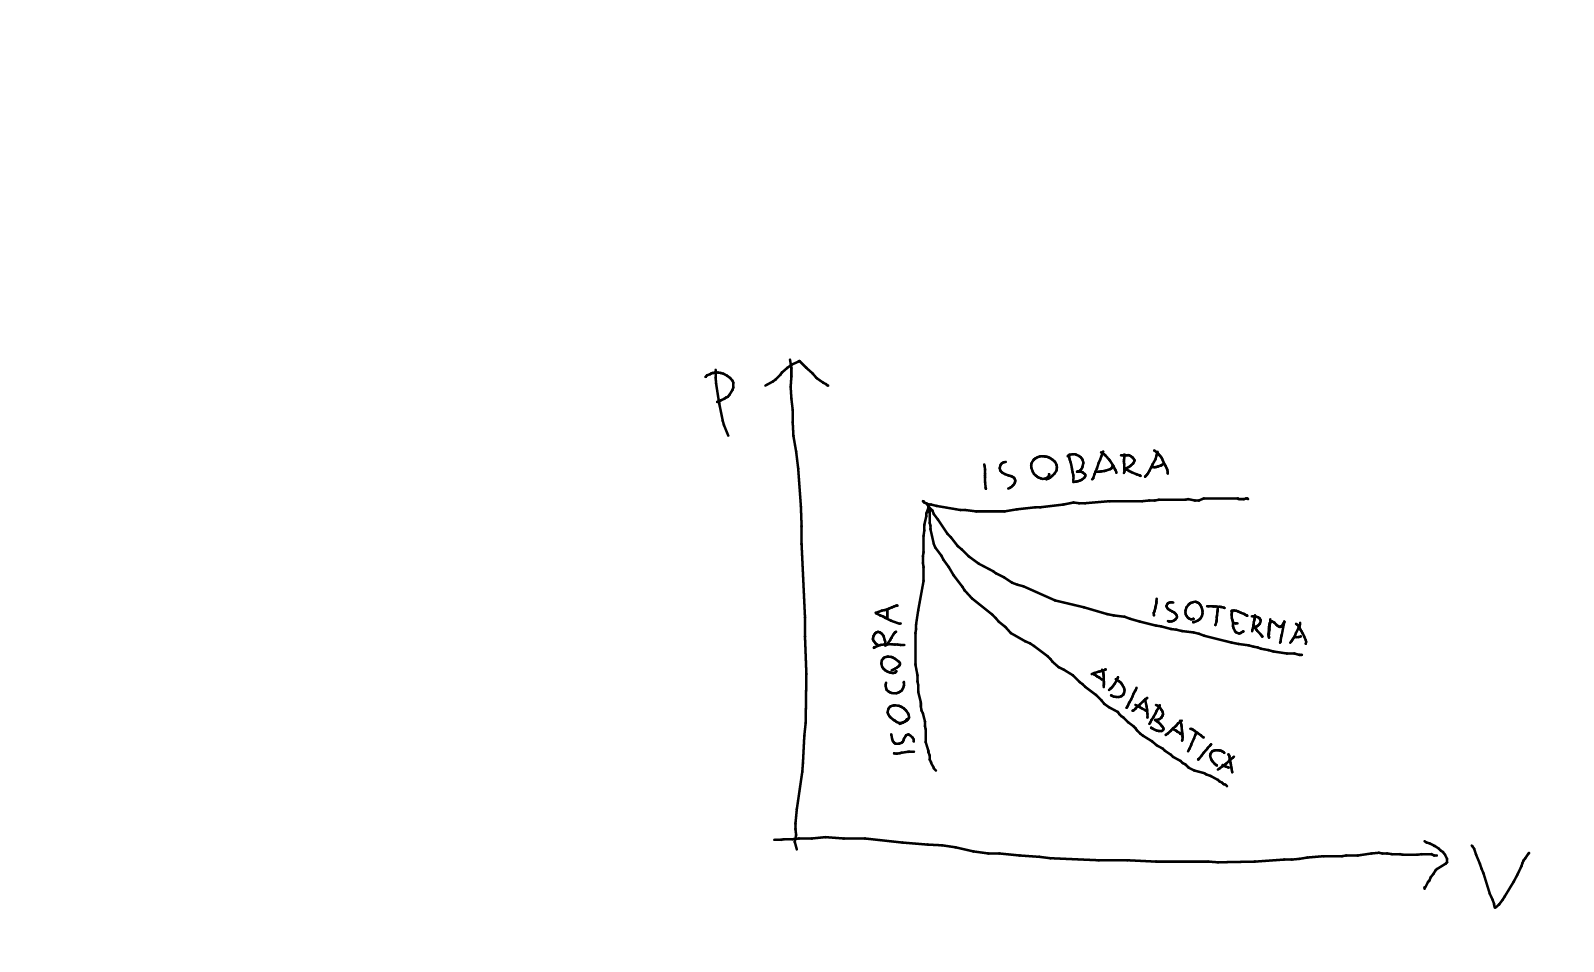 P
ISOBARA
ISOTERMA
ISOCORA
ADIABATICA
V